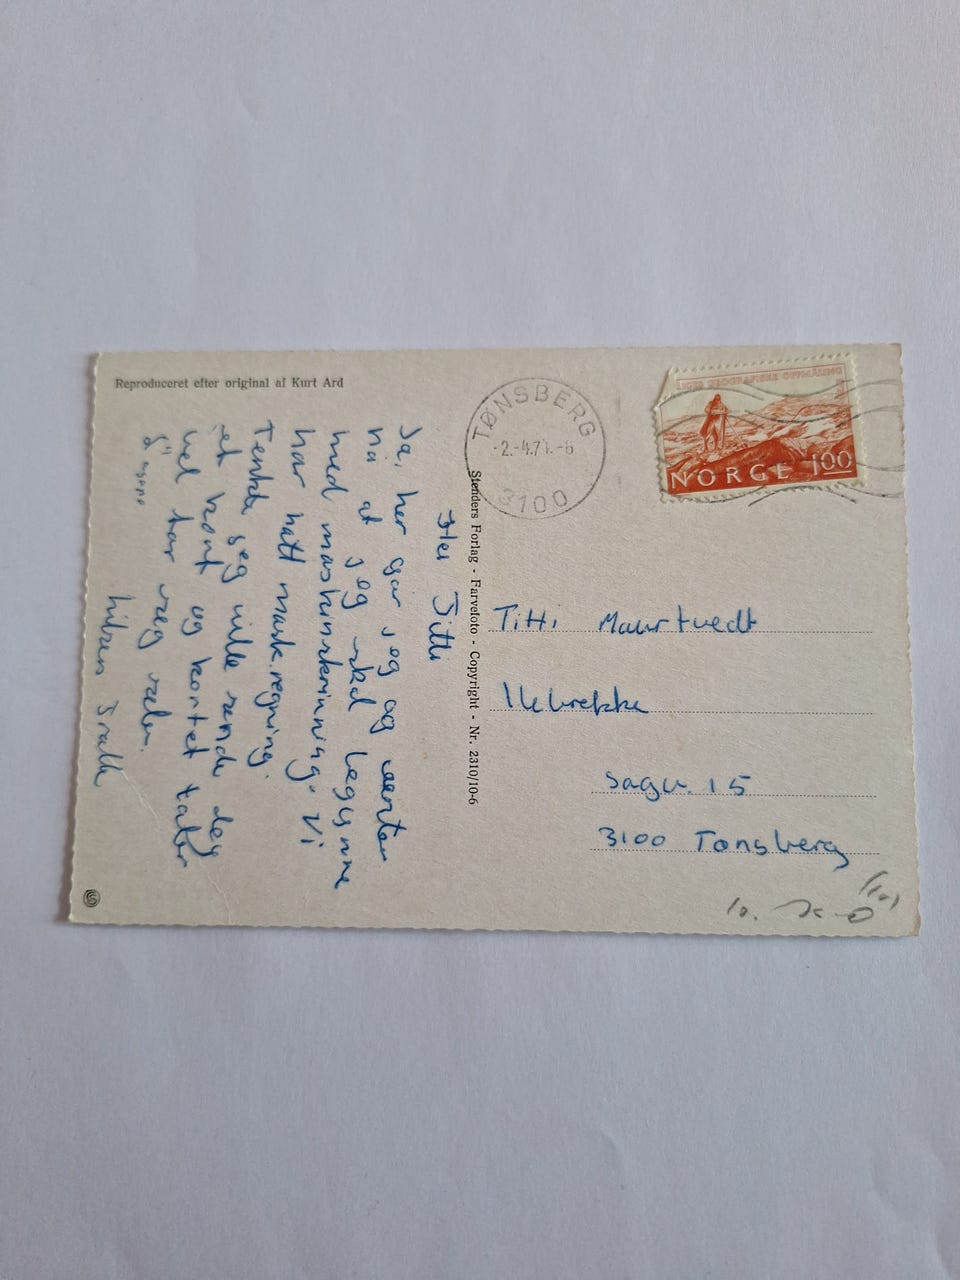 Reproduceret efter original af Kurt Ard
TØNSBERG
-2.-4.7 -6
3100
NORGES GEOGRAFISKE OPPMÅLING
NORGE 100
Stenders Forlag - Farvefoto - Copyright - Nr. 2310/10-6
Hei Titti
Ja, her går jeg og venter
på at jeg skal begynne
med maskinskrivning. Vi
har hatt mask.regning.
Tenkte jeg ville sende deg
et kort og kortet taler
vel for seg selv.
Hilsen
Titti Maurtvedt
Ilebrekke
Sagv. 15
3100 Tønsberg
10.